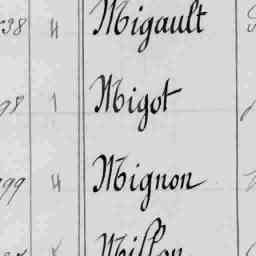 38 4 Migault
98 1 Migot
99 4 Mignon
Millon